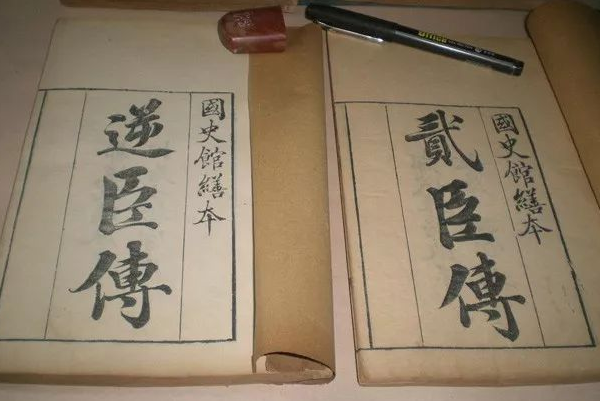 國史館繕本
逆臣傳
國史館繕本
貳臣傳
Office